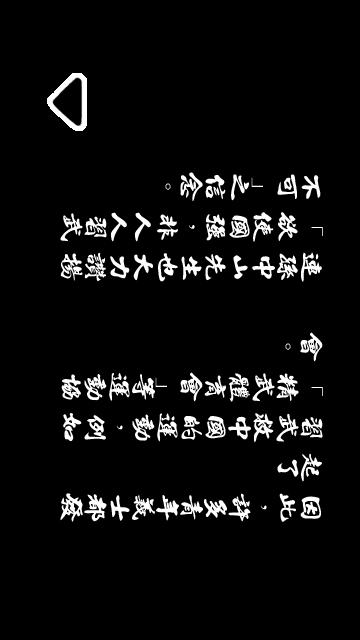 因此，許多青年義士都發
起了
習武救中國的運動，例如
「精武體育會」等運動協
會。
連孫中山先生也大力讚揚
「欲使國強，非人人習武
不可」之信念。